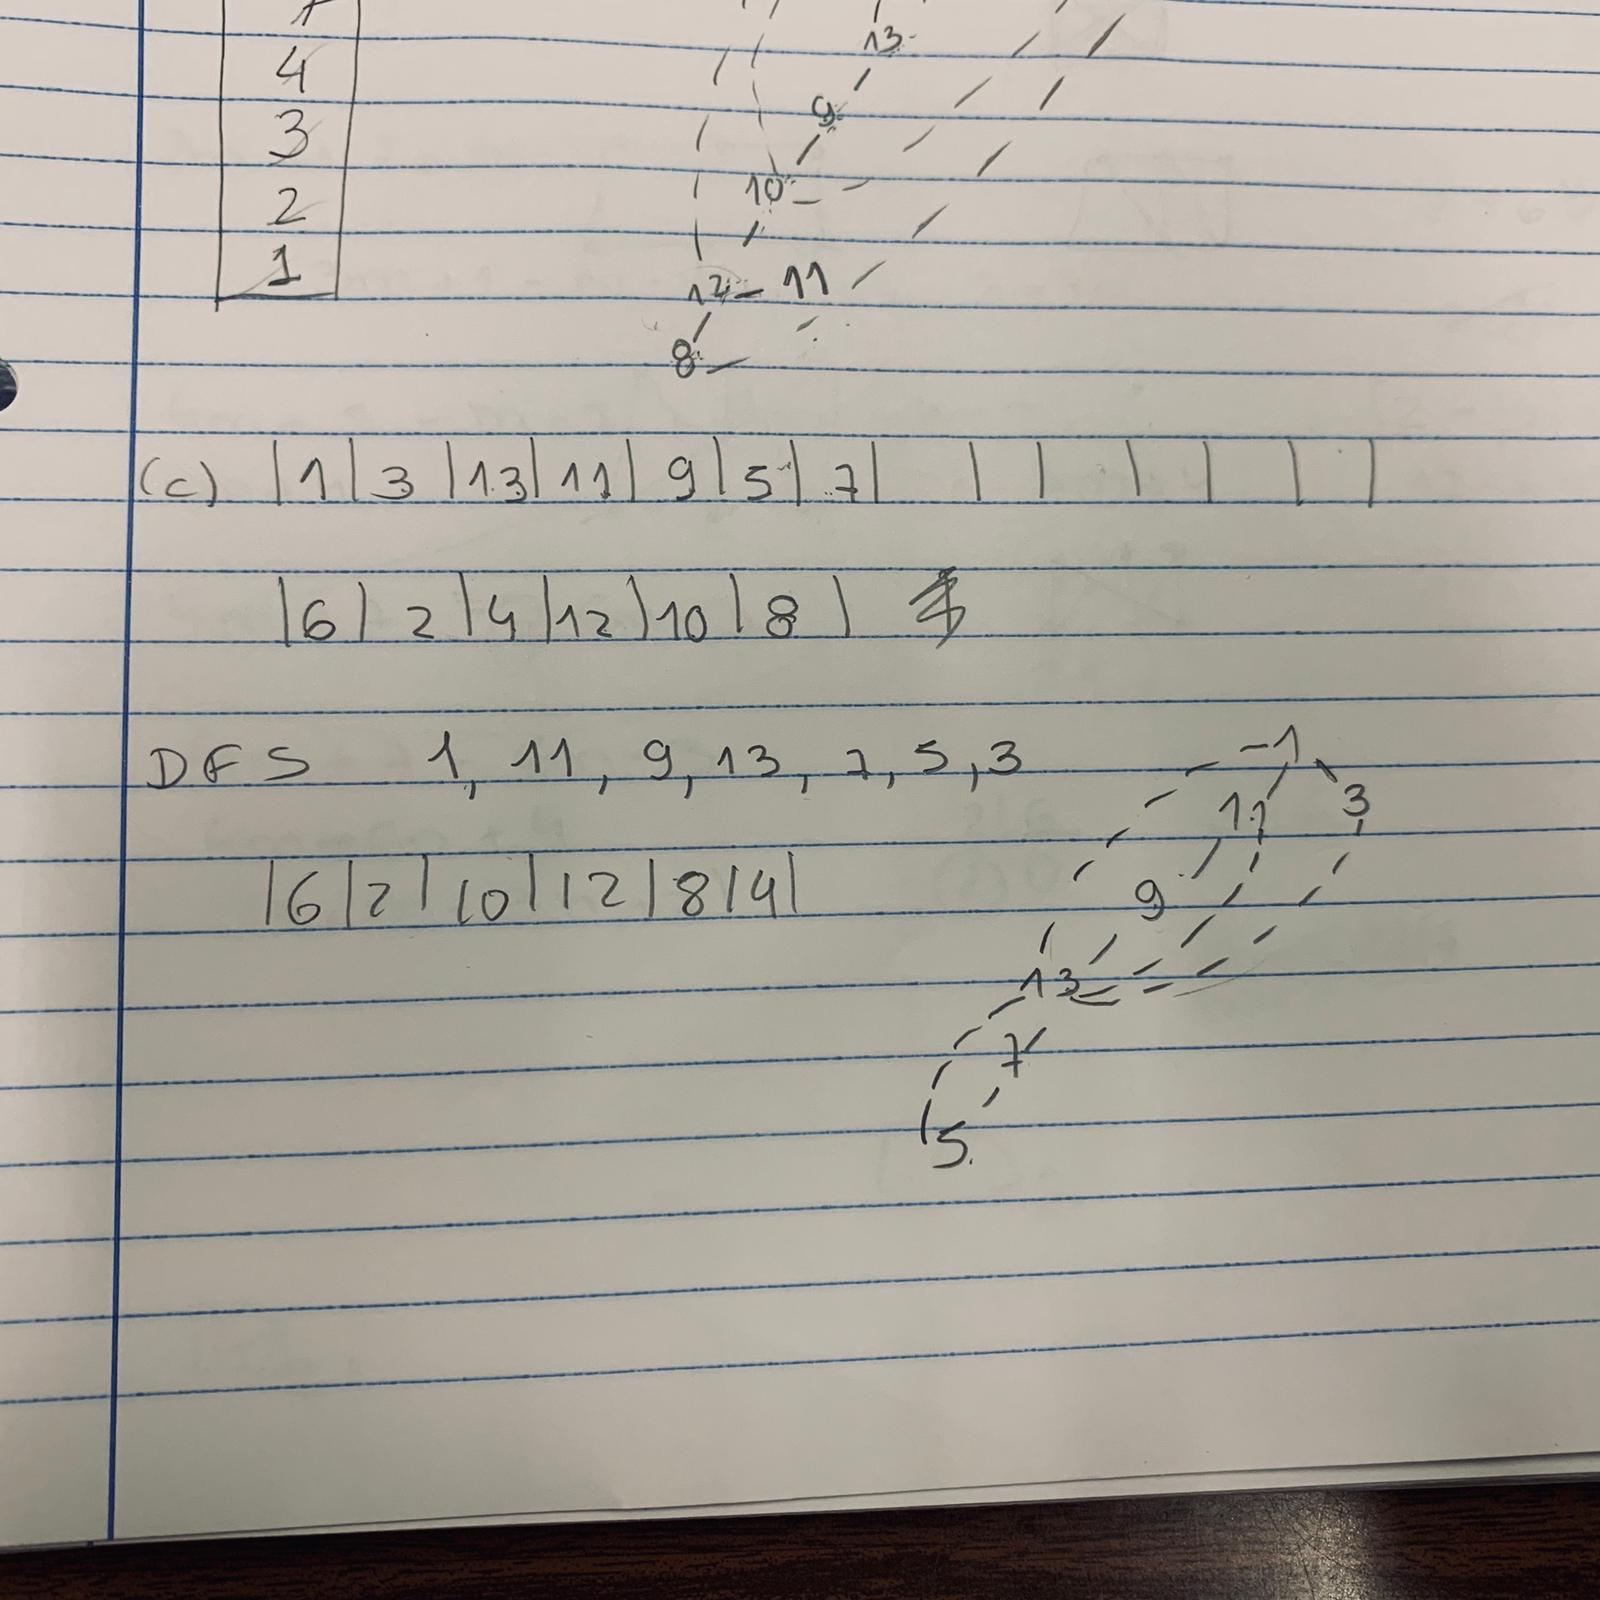 4
3
2
1
13
9
10
12 11
8
(c) |1|3|13|11|9|5|7| | | | | | |
|6|2|4|12|10|8|
DFS 1, 11, 9, 13, 7, 5, 3
|6|2|10|12|8|4|
1
11 3
9
13
7
5